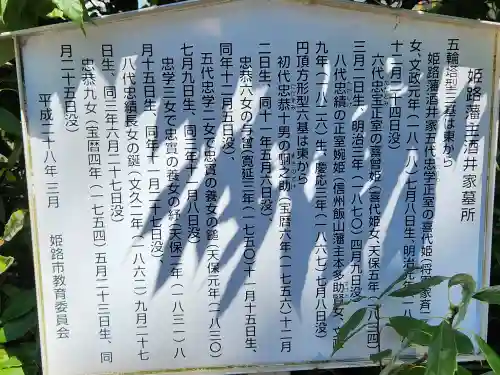 姫路藩主酒井家墓所
五輪塔型三基は東から
姫路藩酒井家五代忠学正室の喜代姫(将軍家斉
女、文政元年(一八一八)七月八日生、明治元年
十二月二十四日没)
六代忠宝正室の喜曽姫(喜代姫女、天保五年(一八三四)
三月二日生、明治三年(一八七〇)四月九日没)
八代忠績の正室婉姫(信州飯山藩主本多助賢女、文政
九年(一八二六)生、慶応三年(一八六七)七月八日没)
円頂方形型六基は東から
初代忠恭十男の啊之助(宝暦六年(一七五六)十二月
二日生、同十一年五月六日没)
忠恭六女の与嘗(寛延三年(一七五〇)十一月十五日生、
同年十二月五日没)、
五代忠学二女で忠實の養女の鎰(天保元年(一八三〇)
七月九日生、同三年十二月十八日没)
忠学三女で忠實の養女の紓(天保二年(一八三一)八
月十五日生、同年十一月二十七日没)、
八代忠績長女の鋋(文久二年(一八六二)九月二十七
日生、同三年六月二十七日没)
忠恭九女(宝暦四年(一七五四)五月二十三日生、同
月二十五日没)
平成二十八年三月
姫路市教育委員会